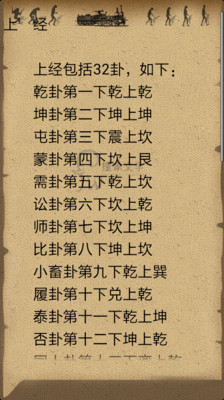 上 经
上经包括32卦，如下：
乾卦第一下乾上乾
坤卦第二下坤上坤
屯卦第三下震上坎
蒙卦第四下坎上艮
需卦第五下乾上坎
讼卦第六下坎上乾
师卦第七下坎上坤
比卦第八下坤上坎
小畜卦第九下乾上巽
履卦第十下兑上乾
泰卦第十一下乾上坤
否卦第十二下坤上乾